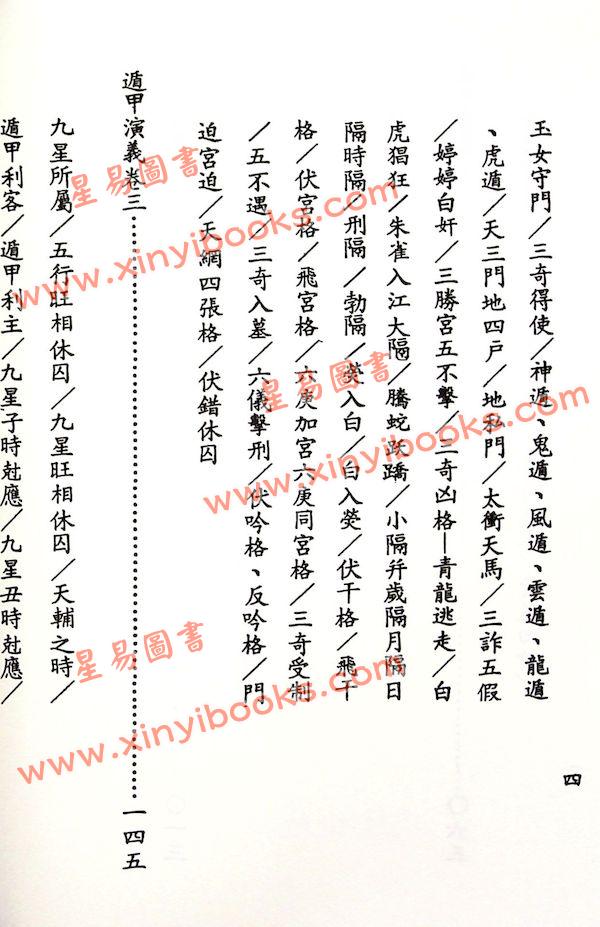 玉女守門╱三奇得使╱神遁、鬼遁、風遁、雲遁、龍遁
、虎遁╱天三門地四戶╱地私門╱太衝天馬╱三詐五假
╱婷婷白奸╱三勝宮五不擊╱三奇凶格—青龍逃走╱白
虎猖狂╱朱雀入江大隔╱騰蛇跃蹻╱小隔幷歲隔月隔日
隔時隔╱刑隔╱勃隔╱熒入白╱白入熒╱伏干格╱飛干
格╱伏宮格╱飛宮格╱六庚加宮六庚同宮格╱三奇受制
╱五不遇╱三奇入墓╱六儀擊刑╱伏吟格、反吟格╱門
迫宮迫╱天網四張格╱伏錯休囚
遁甲演義卷三…………………………………………一四五
九星所屬╱五行旺相休囚╱九星旺相休囚╱天輔之時╱
遁甲利客╱遁甲利主╱九星子時尅應╱九星丑時尅應╱
四
星易圖書
www.xinyibooks.com
星易圖書
www.xinyibooks.com
星易圖書
www.xinyibooks.com